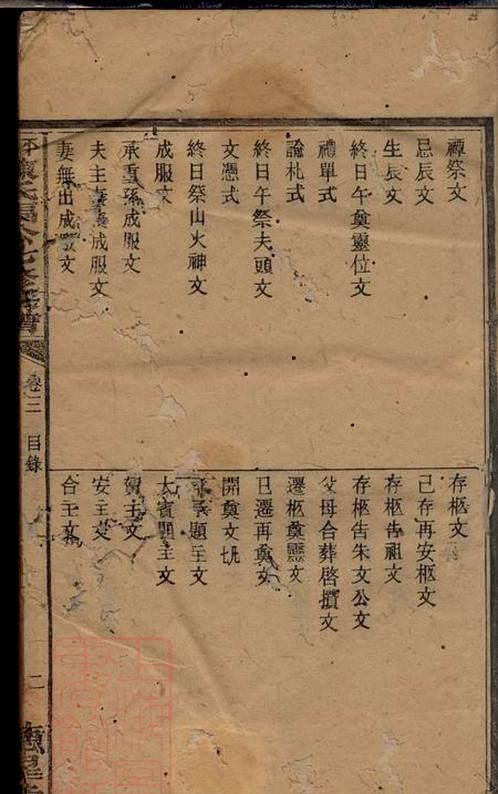 禫祭文
忌辰文
生辰文
終日午奠靈位文
禮單式
諭札式
終日午祭夫頭文
文憑式
終日祭山火神文
成服文
承重孫成服文
夫主妻成服文
妻無出成服文
存柩文
己存再安柩文
存柩告祖文
存柩告朱文公文
父母合葬啓攢文
遷柩奠靈文
已遷再奠文
開奠文
題主文
大賓題主文
賀主文
安主文
合主文
卷三
目錄
二